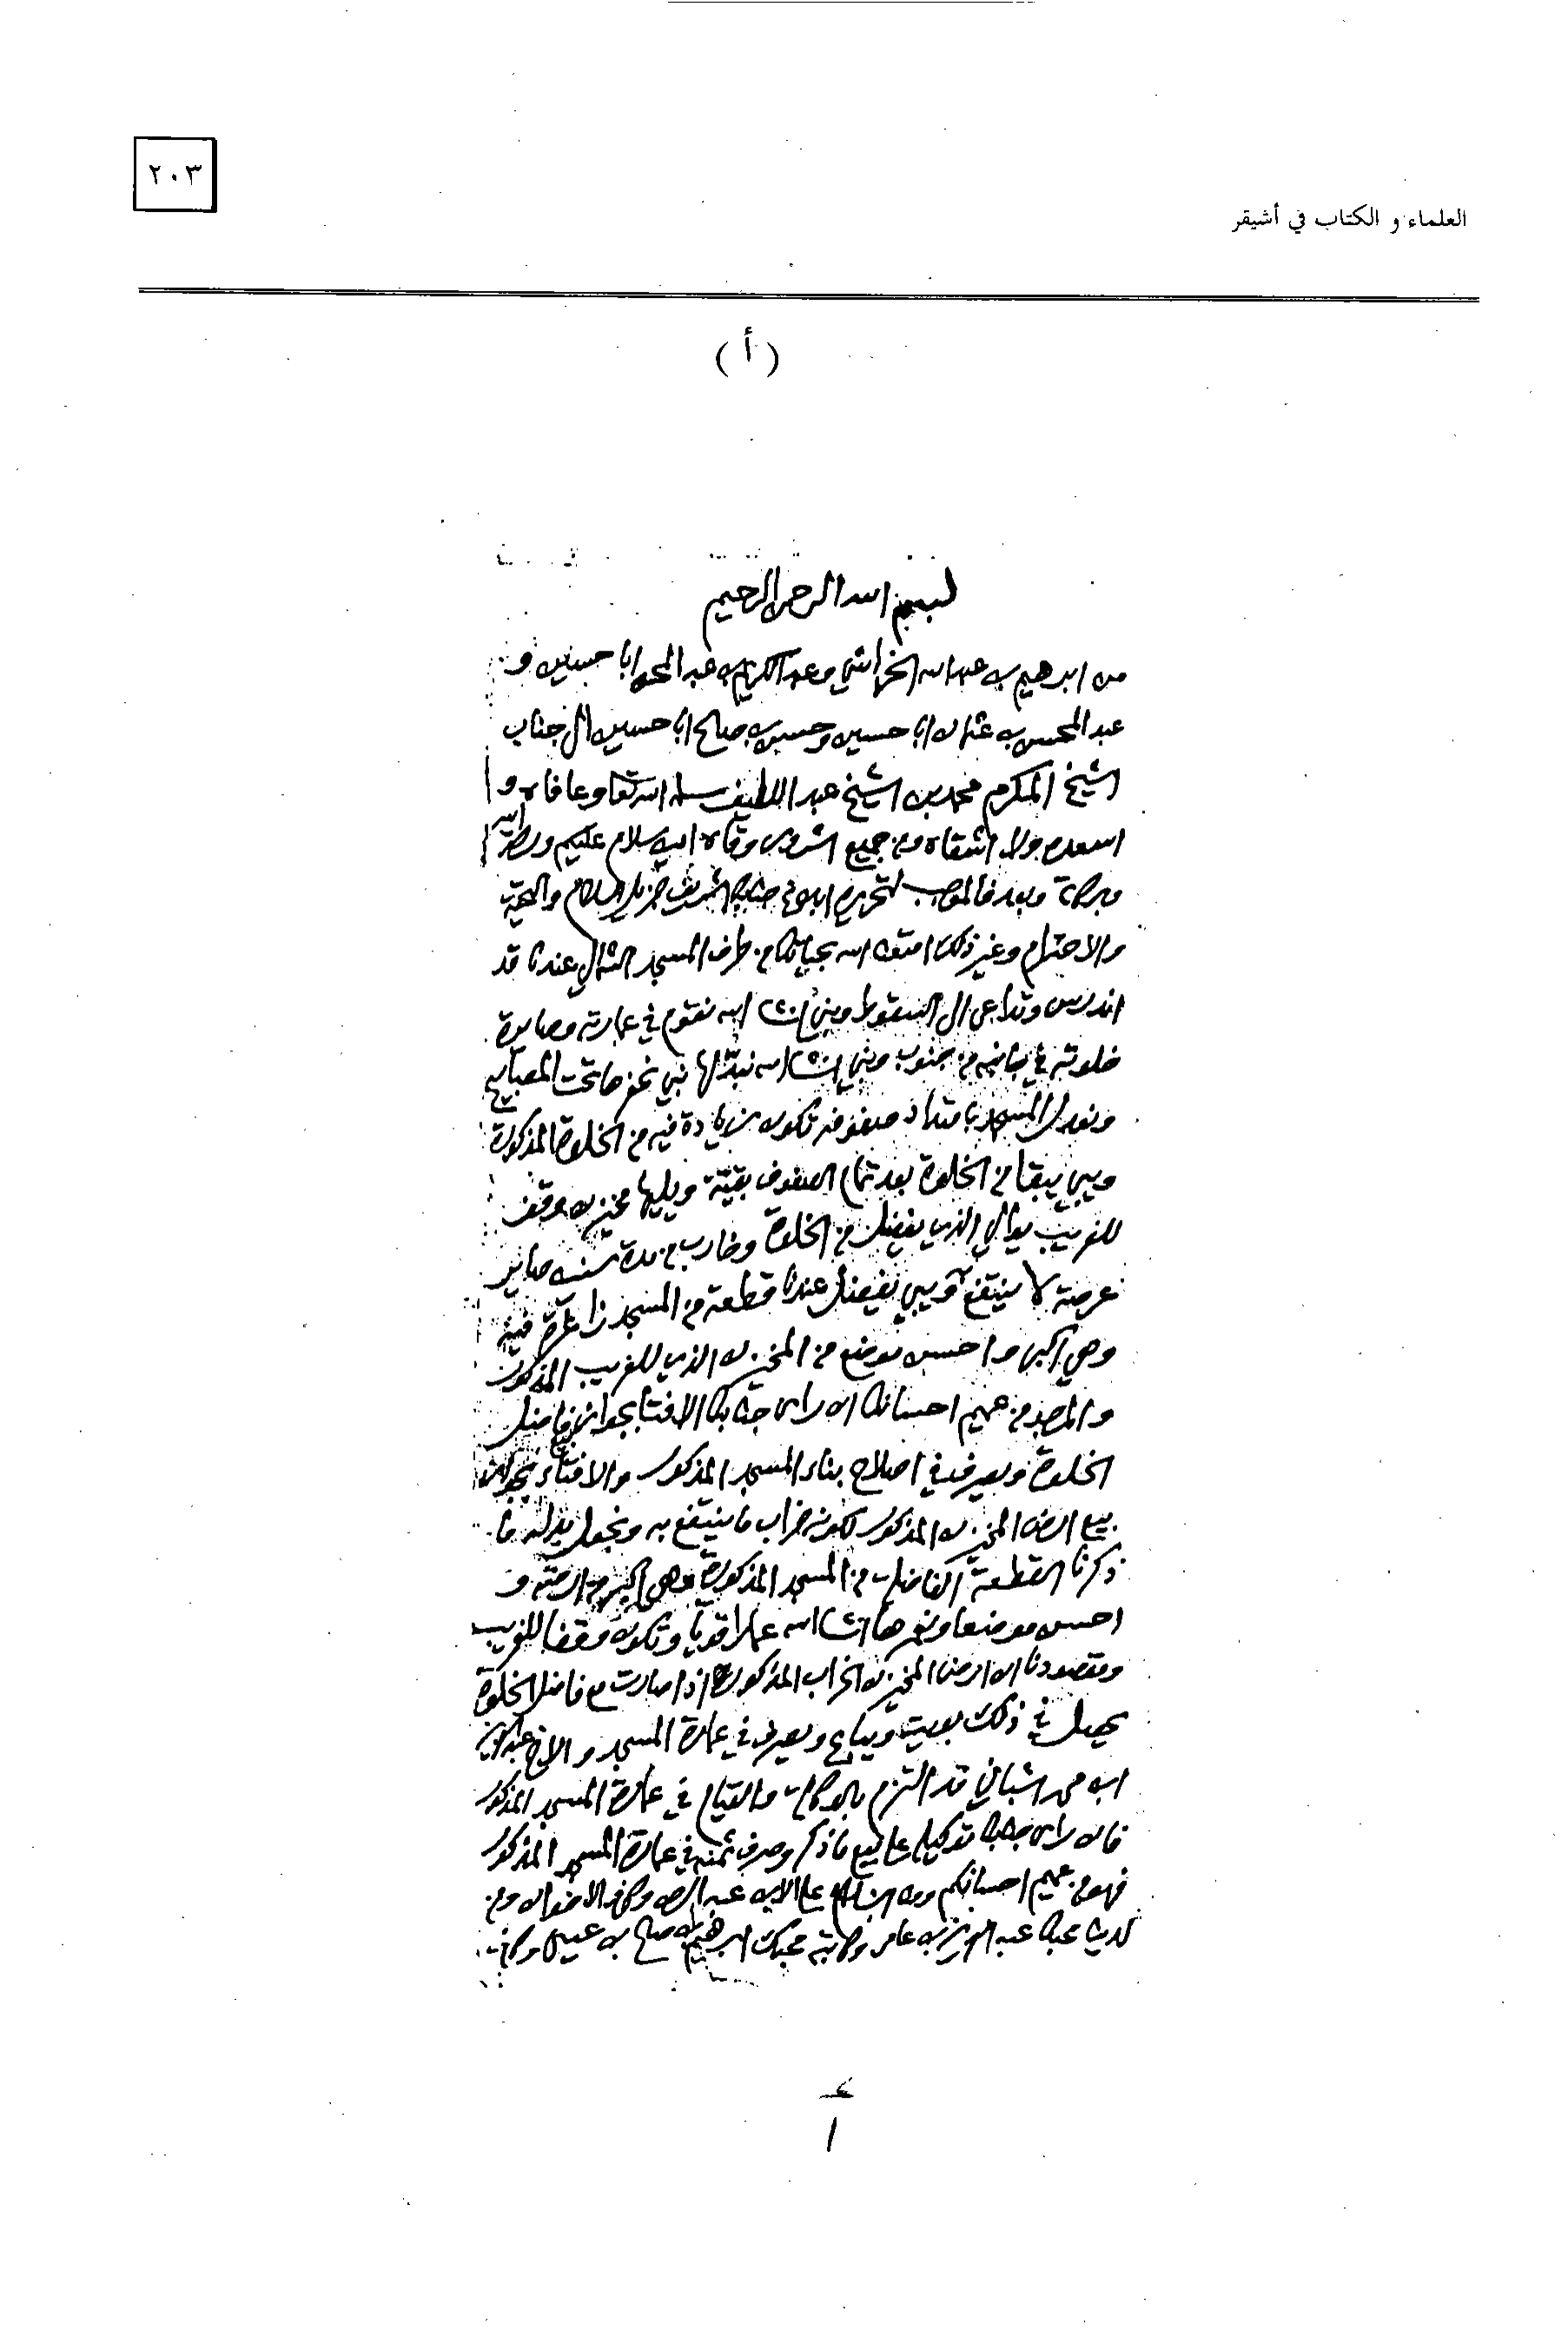 ٢٠٣
العلماء و الكتاب في أشيقر
(أ)
بسم الله الرحمن الرحيم
من ابرهيم بن عبدالله الخراشي وعبد الكريم بن عبدالمحسن ابا حسين و
عبد المحسن بن عثمان ابا حسين وحسين بن صالح ابا حسين الى جناب
الشيخ المكرم محمد بن الشيخ عبد اللطيف سلمه الله تعا وعافاه و
اسعده ولا اشقاه ومن جميع الشرور وقاه امين سلام عليكم ورحمة الله
وبركاته وبعد فالموجب لتحريره ابلاغ جنابك الشريف جزيل السلام والتحية
والاحترام وغير ذلك امتع الله بحياتك من طرف المسجد الشمالي عندنا قد
اندرس وتداعى الى السقوط ونبي انشاء الله نقوم في عمارته وصايرة
خلوته في جانبه من جنوب ونبي انشاء الله نبدلها نبي نحفرها تحت المصابيح
ونعدل المسجد بامتداد صفوفه تكون زيادة فيه من الخلوة المذكورة
ويبي يبقا من الخلوة بعد تمام الصفوف بقية ويليها مخزن وقف
للغريب يوالي الذي يفضل من الخلوة وخارب من مدة سنين صاير
عرصة لا ينتفع به ويبي يفضل عندنا قطعة من المسجد زايدة فيه
وهي اكبر واحسن موضع من المخزن الذي للغريب المذكور
والمرجو من عميم احسانك ان راى جنابك الافتا بجواز بيع فاضل
الخلوة ويصرف في اصلاح بناء المسجد المذكور والافتاء بجواز
بيع ارض المخزن المذكور لكونه خراب ما ينتفع به ونجعل بدله ما
ذكرنا القطعة الفاضلة من المسجد المذكورة وهي اكبر من ارضه و
احسن موضعا ونعمرها انشاء الله عمارا قويا وتكون وقفا للغريب
ومقصودنا ان ارض المخزن الخراب المذكور اذا صارت مع فاضل الخلوة
يحصل في ذلك بيت ويباع ويصرف في عمارة المسجد والاخ عبدالعزيز
ابن محمد الشباني قد التزم بالوكالة والقيام في عمارة المسجد المذكور
فان راى جنابك توكيله على بيع ما ذكر وصرف ثمنه في عمارة المسجد المذكور
فهو من عميم احسانكم ومنا السلام على الابن عبد الرحمن وكافة الاخوان ومن
لدينا محبك عبد العزيز بن عامر وكاتبه محبك ابرهيم بن صالح بن عيسى وكافة